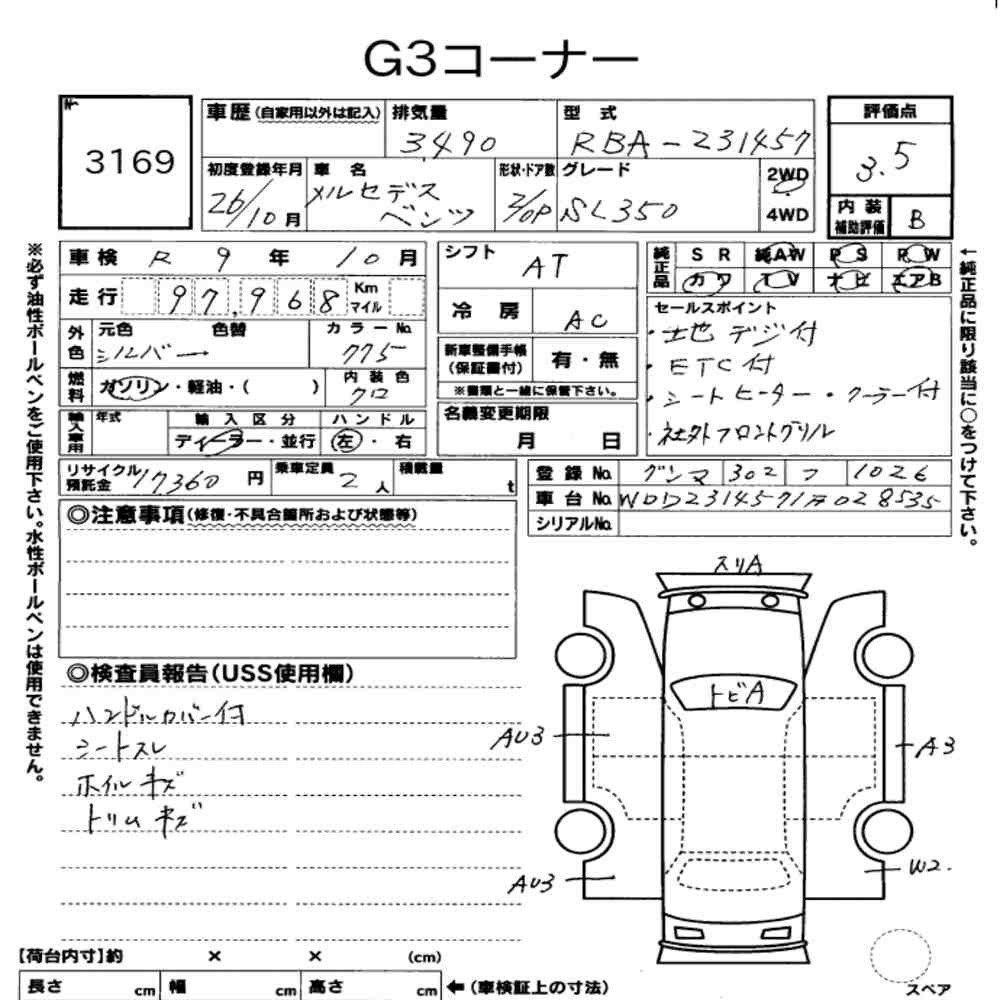 G3コーナー
3169
車歴(自家用以外は記入) 排気量 3,490 型式 RBA-231457
評価点 3.5
初度登録年月 26/10月 車名 メルセデスベンツ 形状・ドア数 2/OP グレード SL350 2WD 4WD
内装補助評価 B
車検 R 9年 10月
走行 97,968 Km マイル
外色 元色 シルバー 色替 カラーNo. 775
燃料 ガソリン・軽油・( ) 内装色 クロ
輸入車用 年式 輸入区分 ディーラー・並行 ハンドル 左・右
リサイクル預託金 17360円 乗車定員 2人 積載量 t
シフト AT
冷房 AC
新車整備手帳(保証書付) 有・無
※書類と一緒に保管下さい。
名義変更期限 月 日
純正品 SR 純AW PS PW
カワ TV ナビ エアB
セールスポイント
・土地デジ付
・ETC付
・シートヒーター・クーラー付
・社外フロントグリル
登録No. グンマ 302 フ 1026
車台No. WDD2314571F028535
シリアルNo.
※必ず油性ボールペンをご使用下さい。水性ボールペンは使用できません。
←純正品に限り該当に○をつけて下さい。
◎注意事項(修復・不具合箇所および状態等)
◎検査員報告(USS使用欄)
ハンドルカバー付
シートスレ
ホイルキズ
トリムキズ
スリA
トビA
AU3
A3
AU3
W2
【荷台内寸】約 × × (cm)
長さ cm 幅 cm 高さ cm ←(車検証上の寸法)
スペア